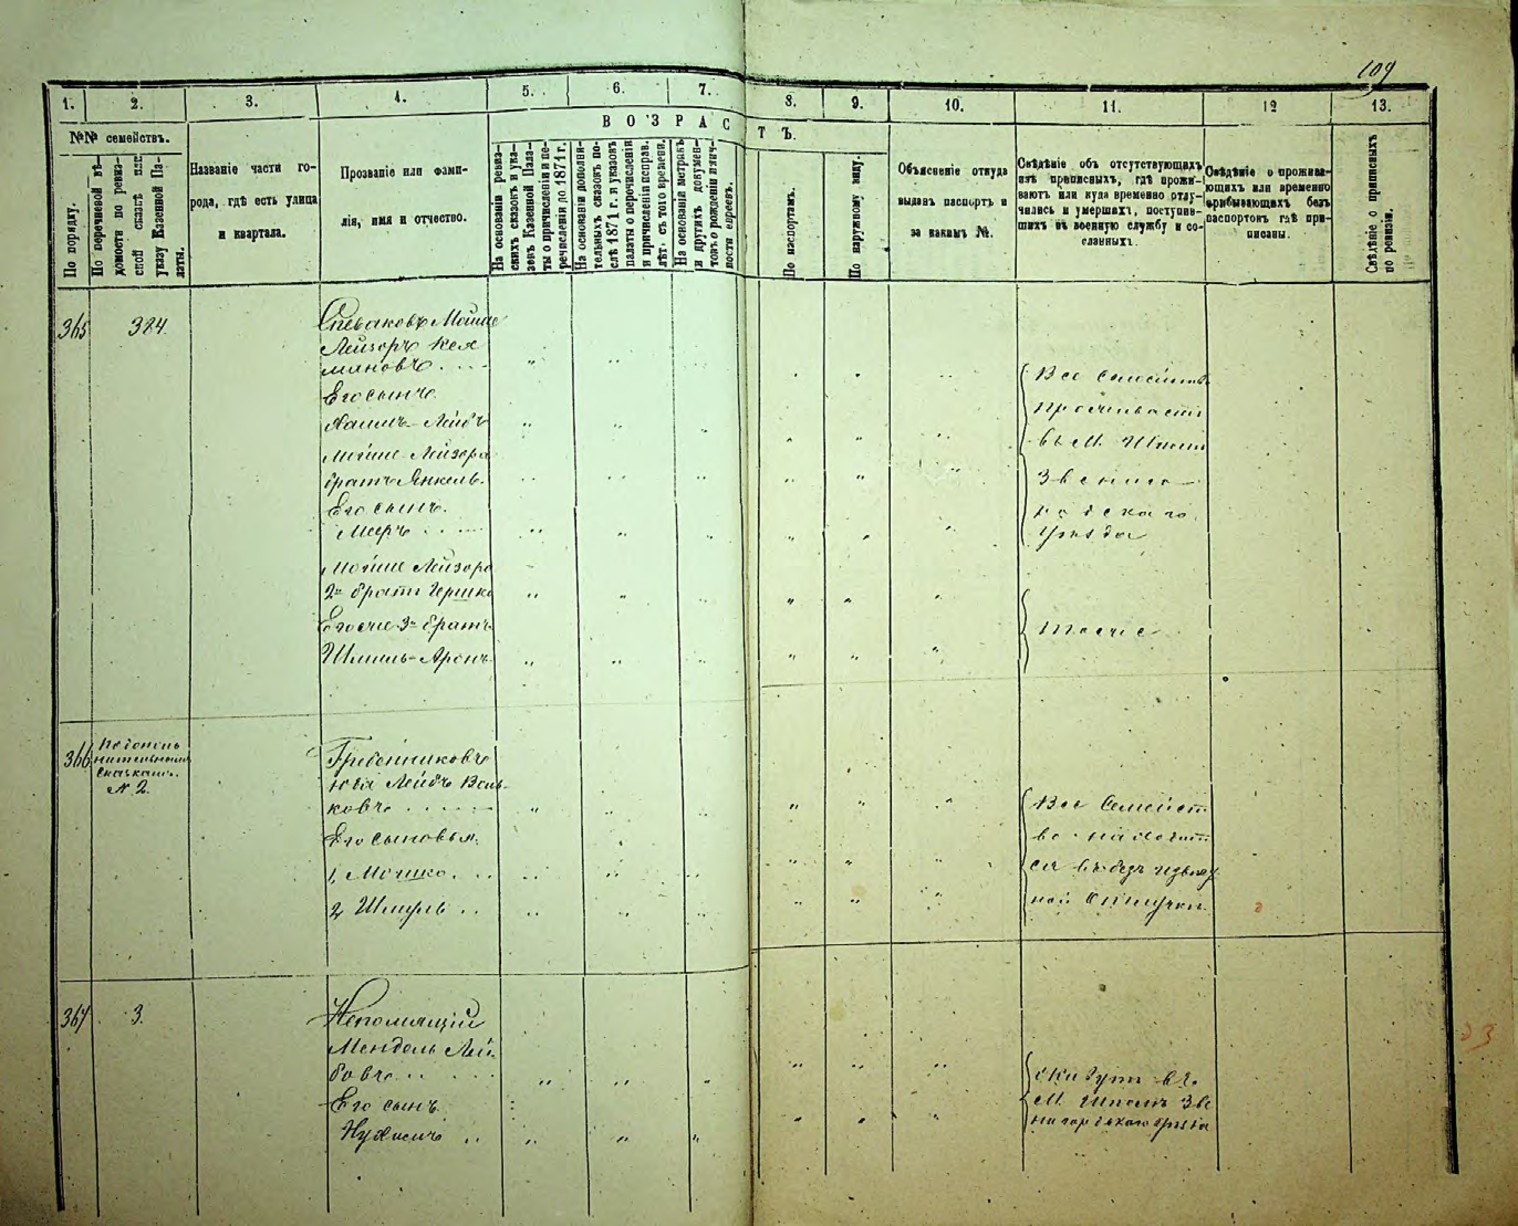 109
1. 2. 3. 4. 5. 6. 7. 8. 9. 10. 11. 12 13.
№№ семействъ.
По порядку.
По перечневой вѣ-
домости по ревиз-
ской сказкѣ или
указу Казенной Па-
латы.
Названіе части го-
рода, гдѣ есть улица
и квартала.
Прозваніе или фами-
лія, имя и отчество.
ВОЗРАСТЪ.
На основаніи ревиз-
скихъ сказокъ и ука-
зовъ Казенной Пала-
ты о причисленіи и пе-
речисленіи до 1871 г.
На основаніи дополни-
тельныхъ сказокъ по-
слѣ 1871 г. и указовъ
палаты о перечисленіи
и причисленіи исправ.
лѣт. съ того времени.
На основаніи метрикъ
и другихъ докумен-
товъ о рожденіи
ности евреевъ.
По паспортамъ.
По наружному виду.
Объясненіе откуда
выданъ паспортъ и
за какимъ №.
Свѣдѣніе объ отсутствующихъ
изъ приписныхъ, гдѣ прожи-
ваютъ или куда временно отлу-
чились и умершихъ, поступив-
шихъ въ военную службу и со-
сланныхъ.
Свѣдѣніе о прожива-
ющихъ или временно
прибывающихъ безъ
паспортовъ гдѣ при-
писаны.
Свѣдѣніе о приписныхъ
по ревизіи.
365 384.
Спеваковъ Мойше
Лейзоръ Кел
миновъ
Его сынъ
Хаимъ-Лейбъ
Мойше Лейзора
братъ Янкель.
Его сынъ.
Мееръ
Мойше Лейзора
2й братъ Гершко
Его еще 3й братъ
Шмиль-Аронъ
Все семейство
проживаетъ
въ М. Шпол
Звениго-
родскаго
Уѣзда
Тоже
366
№ 2.
Гребенниковъ
Лейбъ Воль-
ковъ
Его сыновья:
1, Мошко
2, Шмуль
Все Семейст
во находит
ся въ безъ извѣст
ной Отлучки.
367 3.
Непомнящій
Мендель Лей
бовъ
Его сынъ
Нухимъ
живутъ въ
М. Шполѣ Зве
нигородскаго уѣзда
23